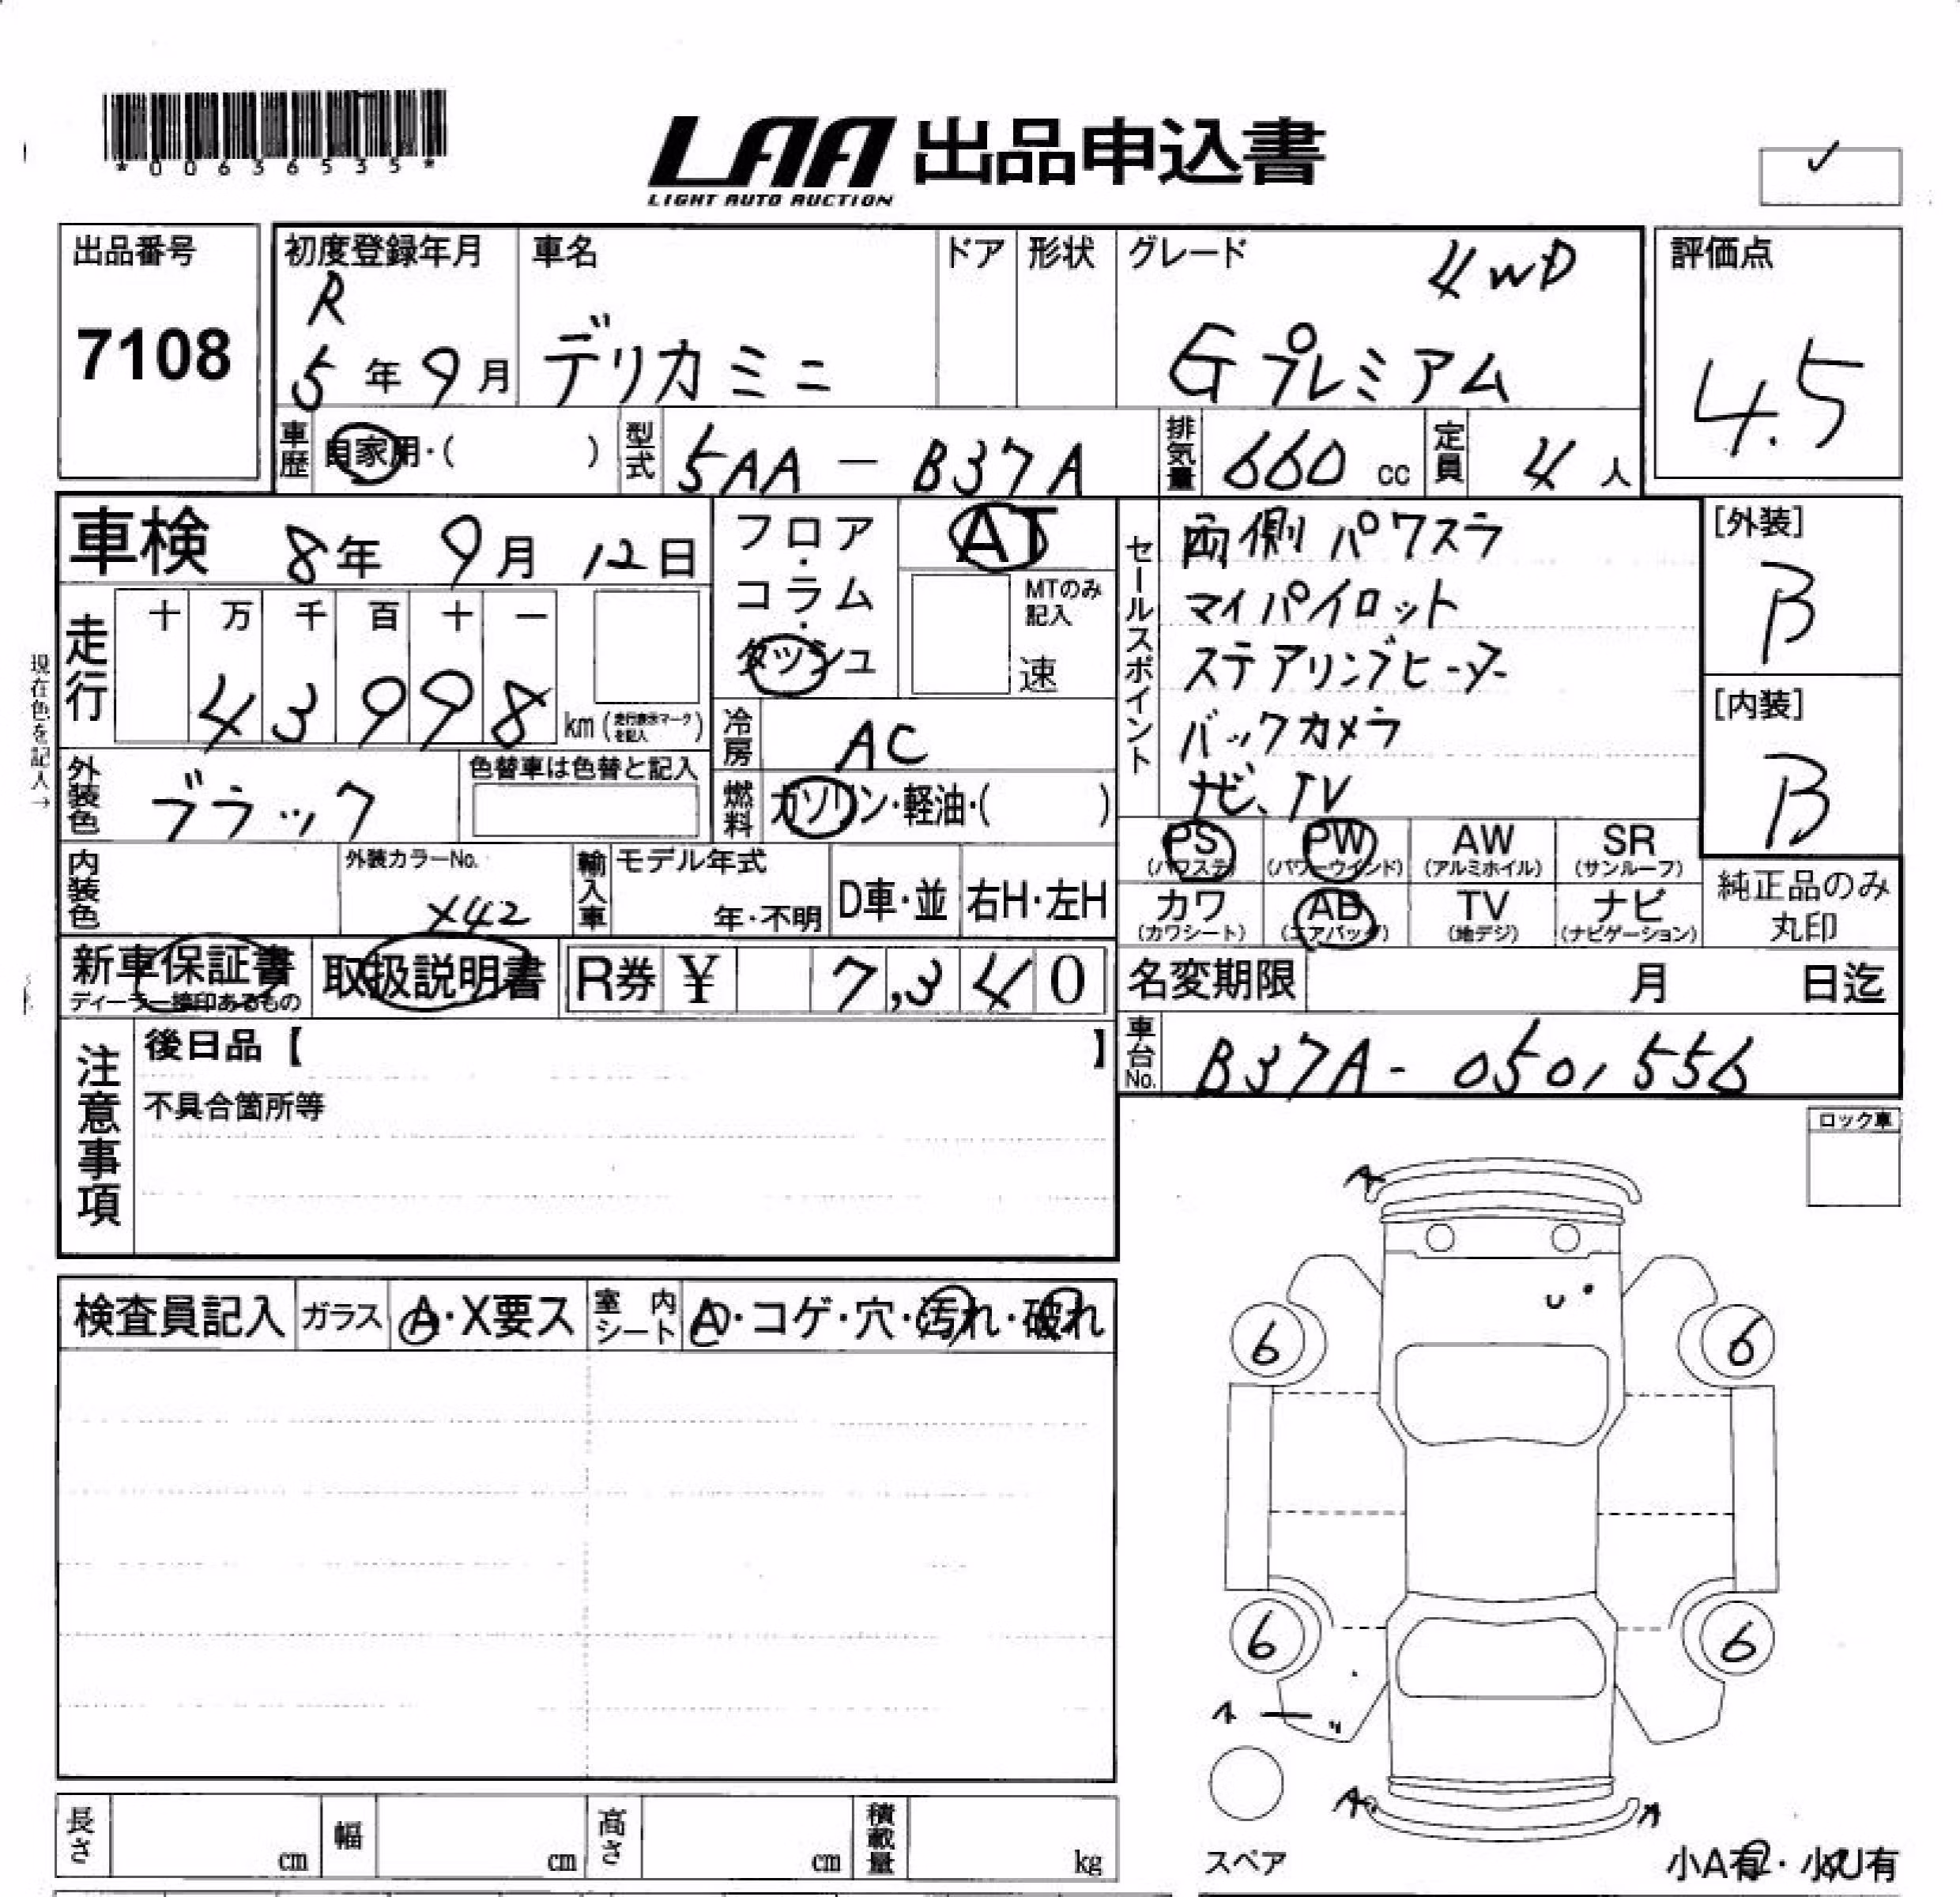 *00636535*
LAA 出品申込書
LIGHT AUTO AUCTION
✓
出品番号
7108
初度登録年月
R
5年9月
車名
デリカミニ
ドア
形状
グレード
4WD
Gプレミアム
評価点
4.5
車歴
自家用・( )
型式
5AA-B37A
排気量
660 cc
定員
4人
車検 8年9月12日
フロア・コラム・ダッシュ
AT
MTのみ記入
速
セールスポイント
両側パワスラ
マイパイロット
ステアリングヒーター
バックカメラ
ナビ、TV
[外装]
B
[内装]
B
現在色を記入→
走行
十 万 千 百 十 一
4 3 9 9 8
km (走行表示マークを記入)
冷房
AC
外装色
ブラック
色替車は色替と記入
燃料
ガソリン・軽油・( )
内装色
外装カラーNo.
X42
輸入車
モデル年式
年・不明
D車・並
右H・左H
PS (パワステ)
PW (パワーウインド)
AW (アルミホイル)
SR (サンルーフ)
カワ (カワシート)
AB (エアバッグ)
TV (地デジ)
ナビ (ナビゲーション)
純正品のみ丸印
新車保証書
ディーラー捺印あるもの
取扱説明書
R券 ¥ 7,340
名変期限 月 日迄
車台No.
B37A-0501556
注意事項
後日品【 】
不具合箇所等
ロック車
検査員記入
ガラス
A・X要ス
室内シート
A・コゲ・穴・汚れ・破れ
A
6 6
6 6
A
A A
スペア
小A有・小U有
長さ cm
幅 cm
高さ cm
積載量 kg